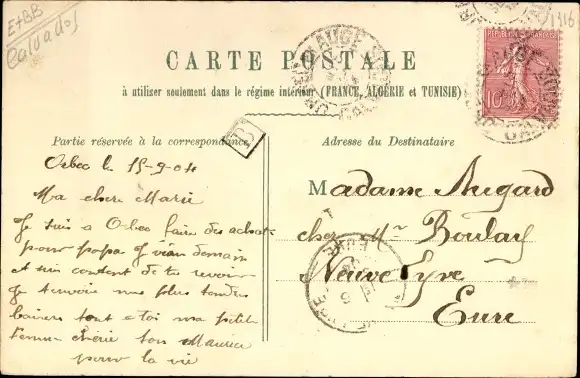 E+BB
Calvados
1916
CARTE POSTALE
à utiliser seulement dans le régime intérieur (FRANCE, ALGÉRIE et TUNISIE)
REPUBLIQUE FRANÇAISE
10
Partie réservée à la correspondance
B
Orbec le 15-9-04
Ma cher Marie
Je suis a Orbec faire des achats
pour papa je vien demain
et sui contend de te revoir
Je tenvoie mes plus tendre
baisers tout a toi ma petite
femme chérie ton Maurice
pour la vie
Adresse du Destinataire
Madame Augard
chez Mr Boulay
Neuve Lyre
Eure